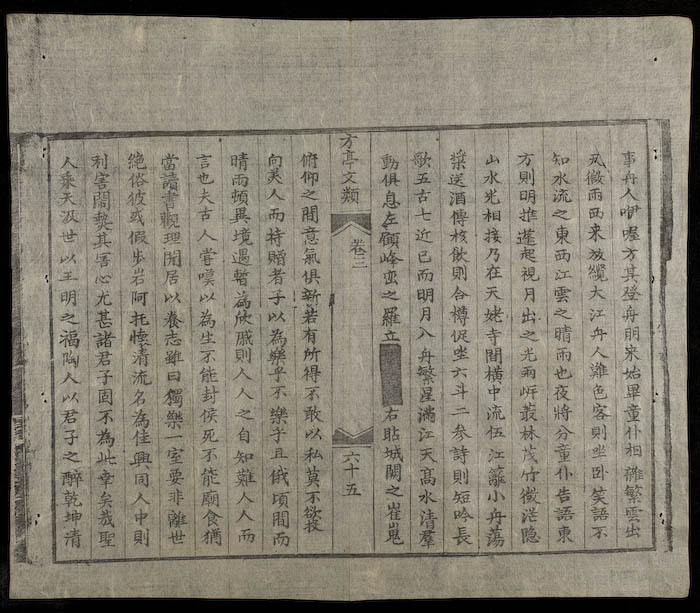 事舟人咿喔方其登舟朋宋始畢童仆相雜繁雲出
風微雨西来放纜大江舟人難色客則坐卧笑語不
知水流之東西江雲之晴雨也夜將分童仆告語東
方則明推蓬起視月出之光兩岸叢林茂竹微茫隐
山水光相接乃在天姥寺間橫中流伍江籬小舟蕩
槳送酒傳核飲則合樽促坐六斗二參詩則短吟長
歌五古七近已而明月入舟繁星满江天高水清羣
動俱息左顧峰巒之羅立 右貼城闕之崔嵬
方亭文類 卷三 六十五
俯仰之間意氣俱新若有所得不敢以私莫不欲投
向美人而持贈者子以為樂乎不樂乎且俄頃間而
晴雨頓異境過暫為欣戚則人人之自知難人人而
言也夫古人嘗嘆以為生不能封侯死不能廟食猶
當讀書觀理閒居以養志雖曰獨樂一室要非離世
絶俗彼或假步岩阿托懷清流名為佳興同人中則
利害閣契其害心尤甚諸君子固不為此幸矣哉聖
人乘天汲世以王明之福陶人以君子之醉乾坤清